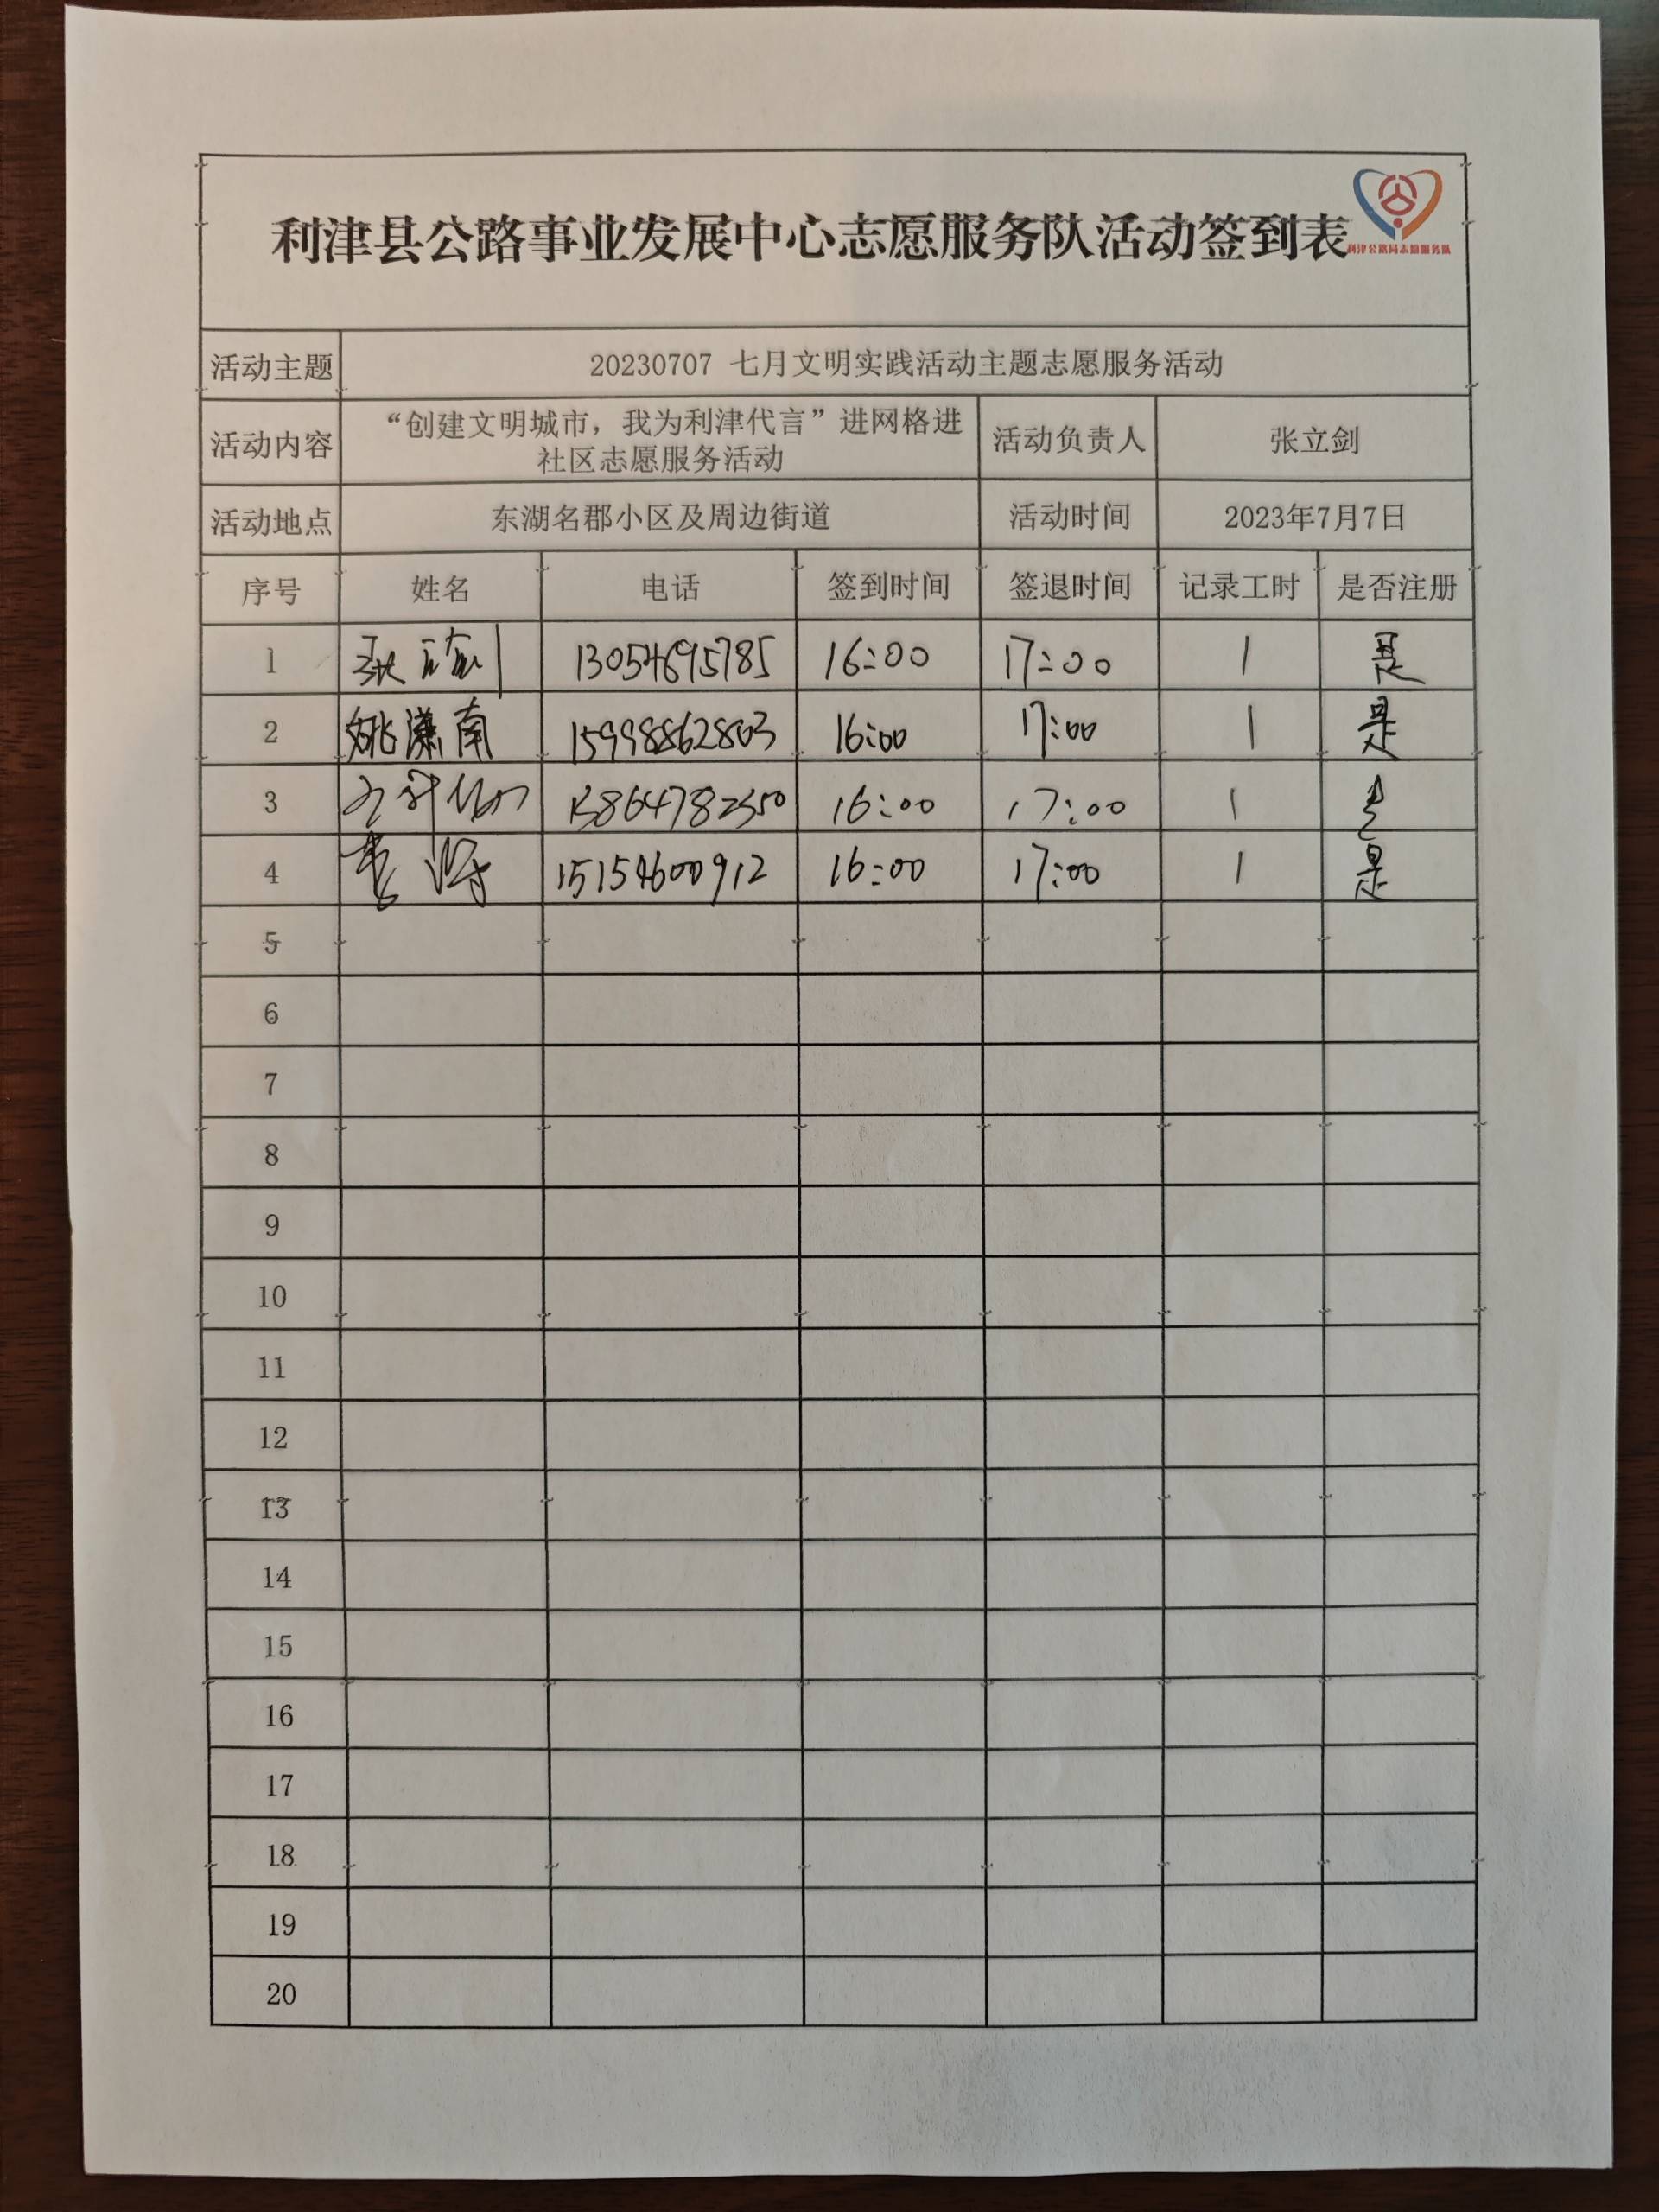 利津县公路事业发展中心志愿服务队活动签到表
利津公路局志愿服务队
活动主题 20230707 七月文明实践活动主题志愿服务活动
活动内容 “创建文明城市，我为利津代言”进网格进
社区志愿服务活动 活动负责人 张立剑
活动地点 东湖名郡小区及周边街道 活动时间 2023年7月7日
序号 姓名 电话 签到时间 签退时间 记录工时 是否注册
1 张立剑 13054695785 16:00 17:00 1 是
2 姚潇南 15998862803 16:00 17:00 1 是
3 13864782350 16:00 17:00 1 是
4 15154600912 16:00 17:00 1 是
5
6
7
8
9
10
11
12
13
14
15
16
17
18
19
20